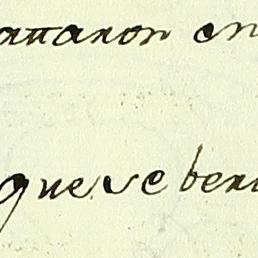 attaron en
que se ben